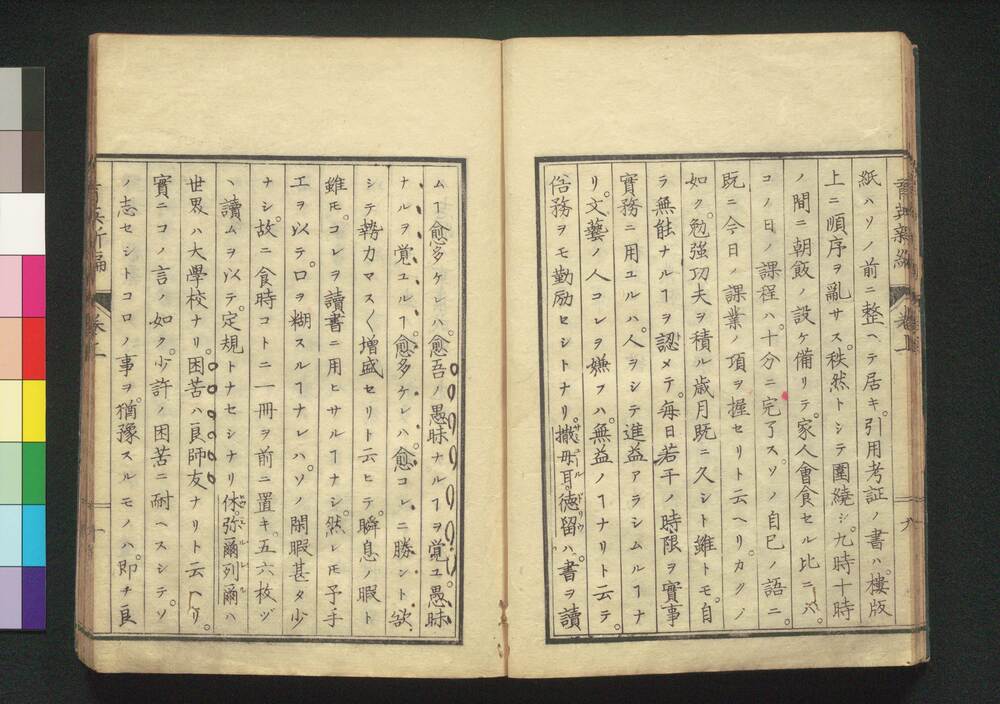 紙ハソノ前ニ整ヘテ居キ。引用考証ノ書ハ。樓版
上ニ順序ヲ亂サス。秩然トシテ圍繞シ。九時十時
ノ間ニ朝飯ノ設ケ備リテ。家人會食セル比ニハ。
コノ日ノ課程ハ。十分ニ完了ス。ソノ自巳ノ語ニ。
既ニ今日ノ課業ノ項ヲ握セリト云ヘリ。カクノ
如ク。勉強功夫ヲ積ル歳月既ニ久シト雖トモ。自
ラ無能ナルヿヲ認メテ。毎日若干ノ時限ヲ實事
實務ニ用ユルハ。人ヲシテ進益アラシムルニナ
リ。文藝ノ人コレヲ嫌フハ。無益ノヿナリト云テ。
俗務ヲモ勤励セシトナリ。撒母耳。徳留ハ。書ヲ讀
ムヿ愈多ケレハ。愈吾ノ愚昧ナルヿヲ覚ユ。愚昧
ナルヲ覚ユルヿ。愈多ケレハ。愈コレニ勝ント欲
シテ。勢力マス〱増盛セリト云ヒテ。瞬息ノ暇ト
雖モ。コレヲ讀書ニ用ヒサルヿナシ。然レモ予手
工ヲ以テ。口ヲ糊スルヿナレハ。ソノ閑暇甚タ少
ナシ。故ニ食時コトニ一冊ヲ前ニ置キ。五六枚ヅ
ヽ讀ムヲ以テ。定規トナセシナリ。休。弥爾列爾ハ
世界ハ大學校ナリ。困苦ハ良師友ナリト云ヘリ。
實ニコノ言ノ如ク。少許ノ困苦ニ耐ヘスシテ。ソ
ノ志セシトコロノ事ヲ。猶豫スルモノハ。即チ良